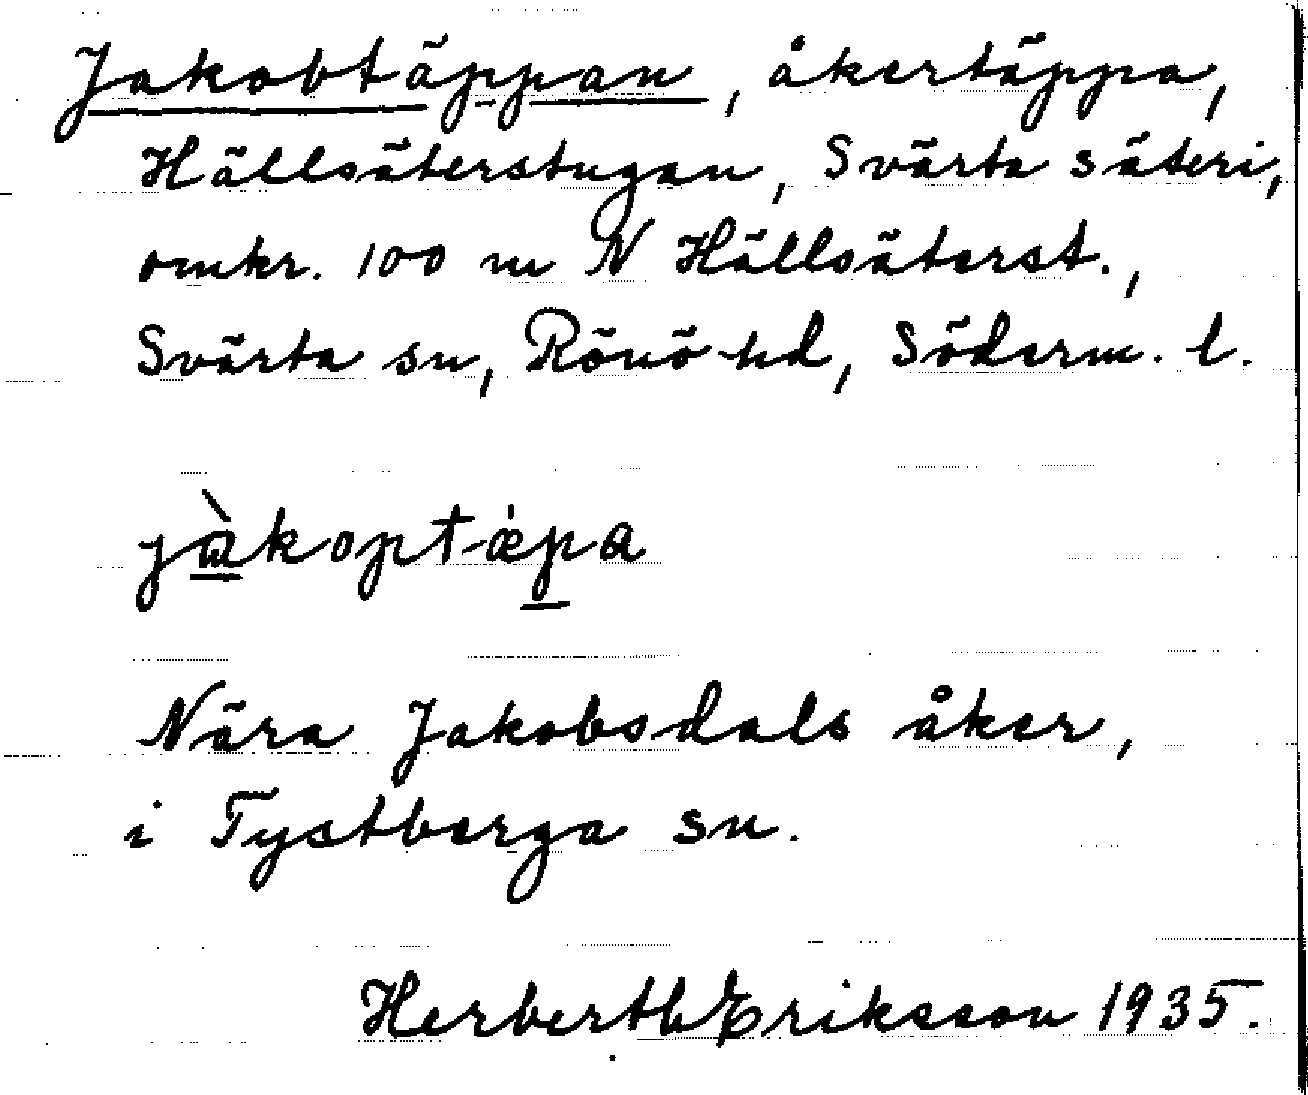 Jakobtäppan, åkertäppa,
Hällsäterstugan, Svärta säteri,
omkr. 100 m N Hällsäterst.,
Svärta sn, Rönö hd, Söderm. l.
jàkoptæ̇pa
Nära Jakobsdals åker,
i Tystberga sn.
Herbert Eriksson 1935.